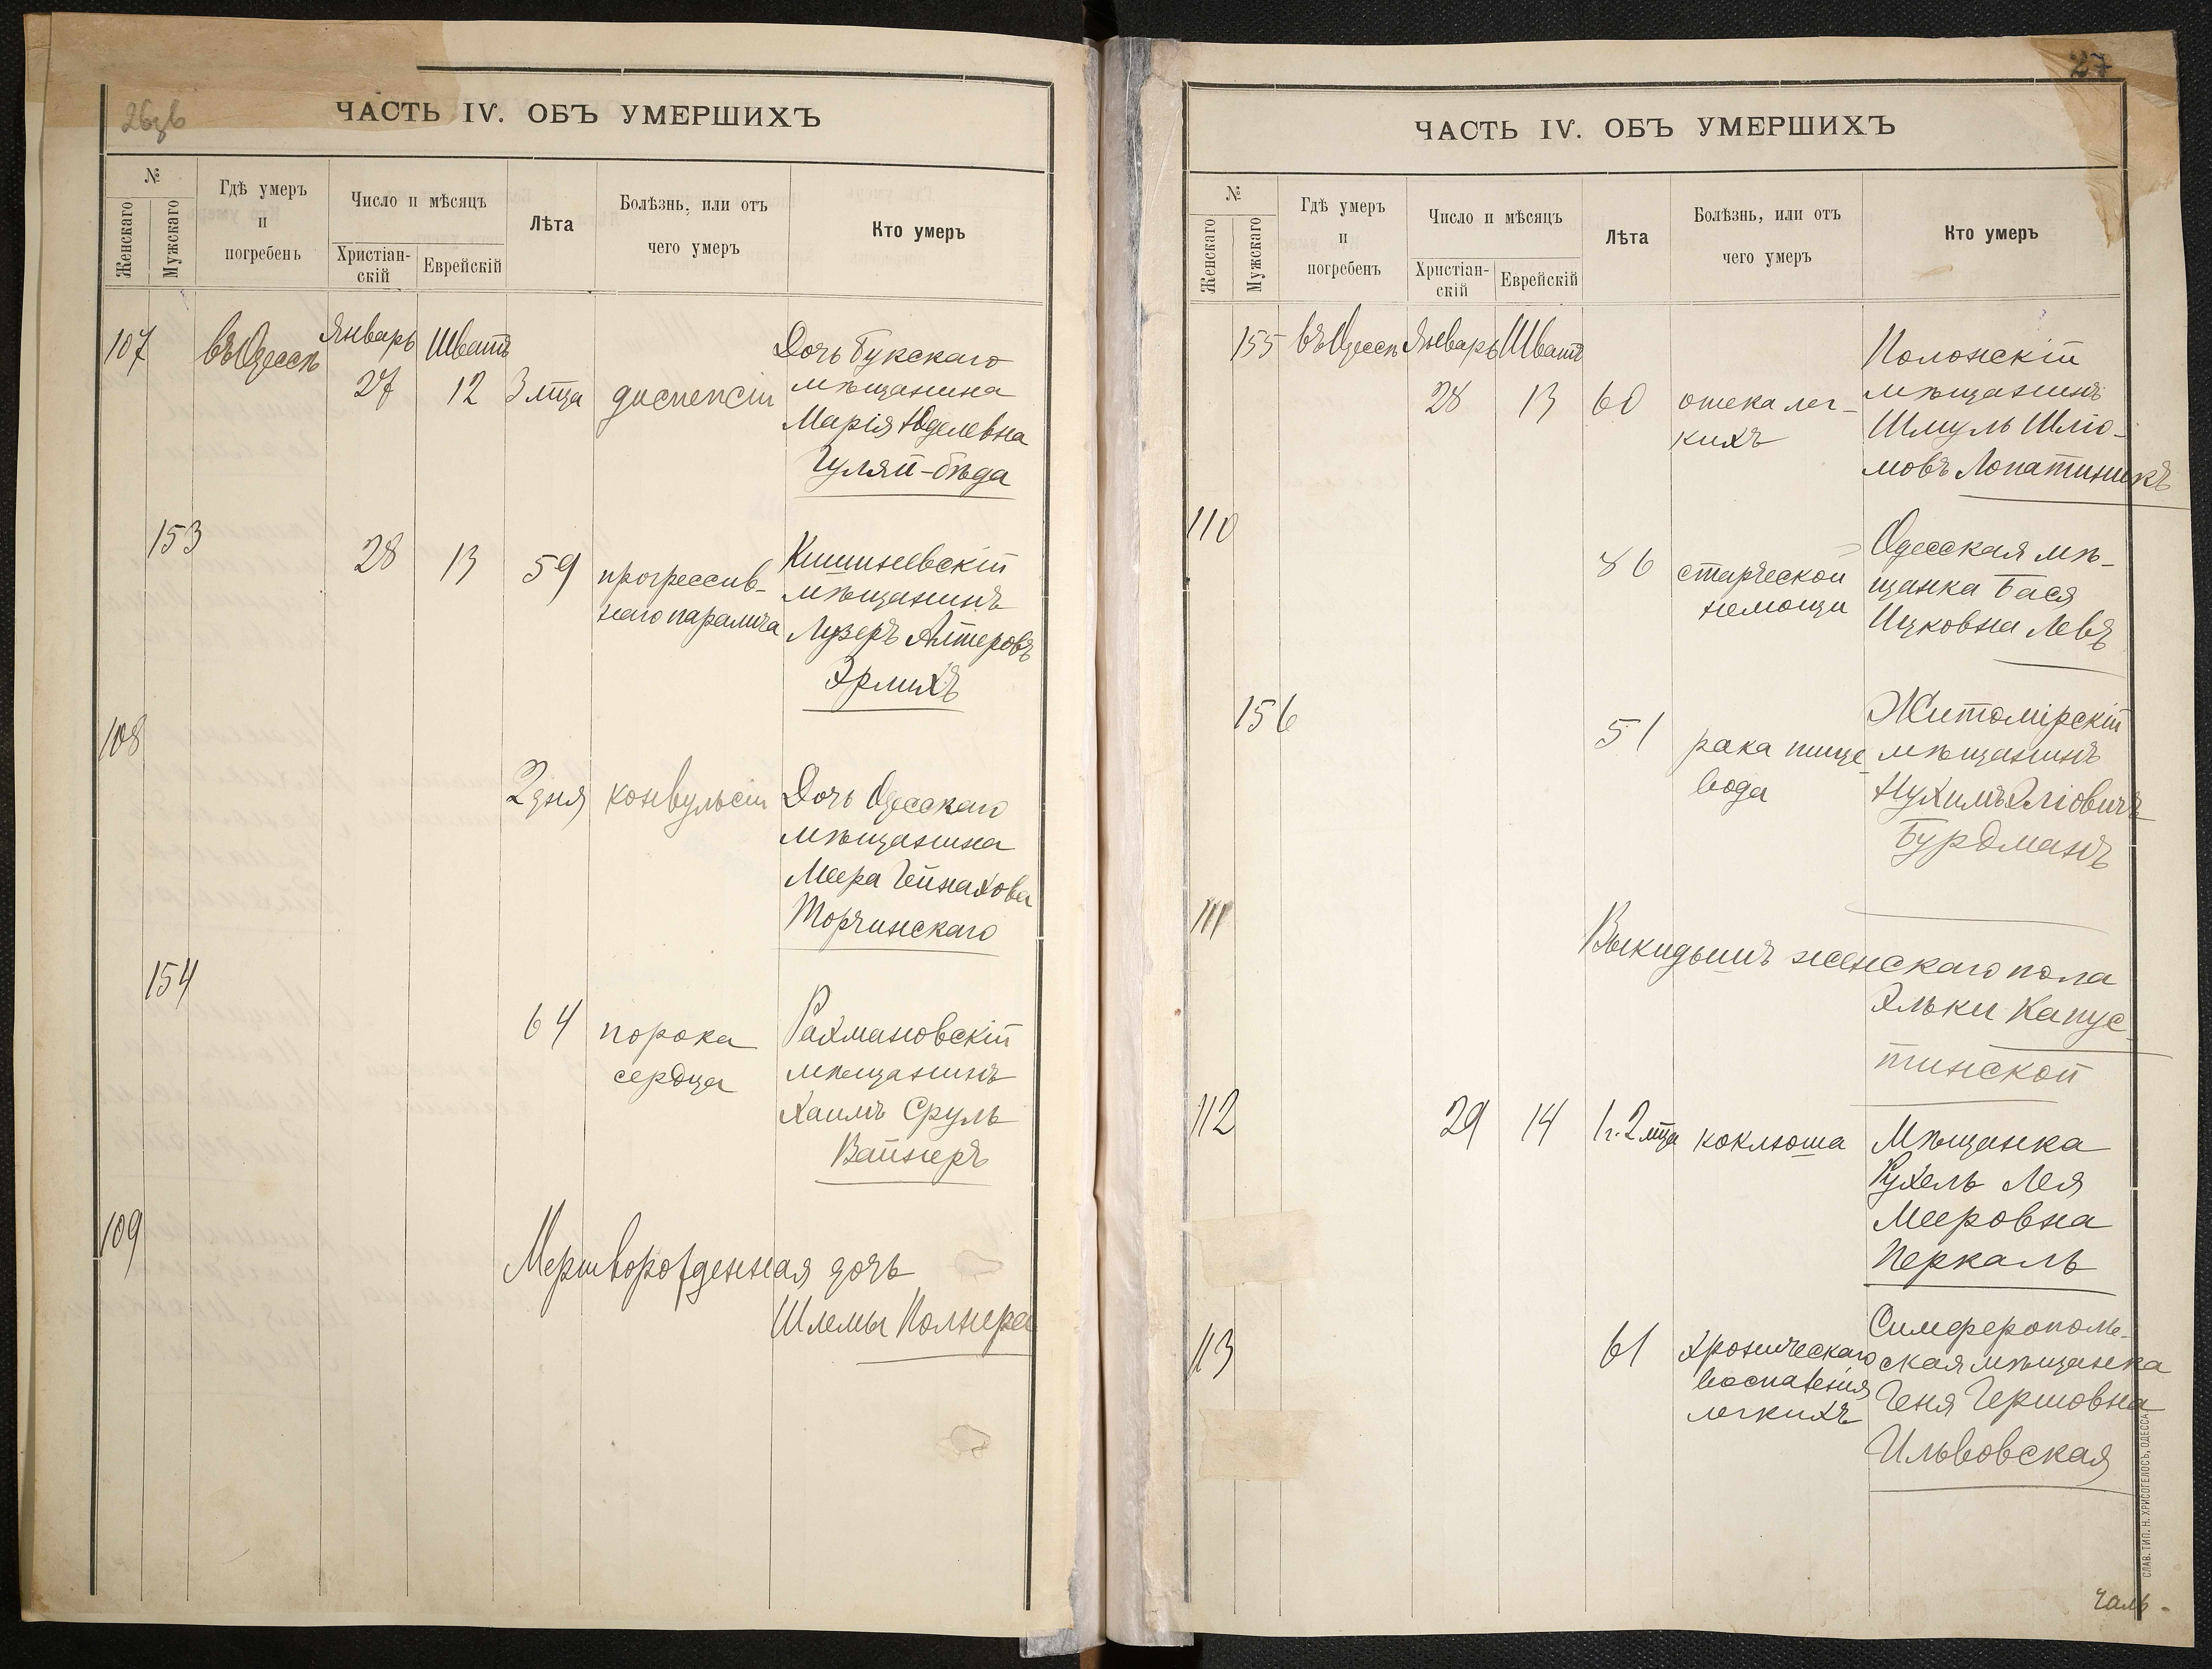 ЧАСТЬ IV. ОБЪ УМЕРШИХЪ
№
Женскаго
Мужскаго
Гдѣ умеръ
и
погребень
Число и мѣсяцъ
Христіан-
скій
Еврейскій
Лѣта
Болѣзнь, или отъ
чего умеръ
Кто умеръ
107
въ Одессѣ
Январь
Шватъ
27
12
3 мца
диспепсіи
Дочь Букскаго
мѣщанина
Марія Юделевна
Гуляй-бѣда
153
28
13
59
прогрессив-
наго паралича
Кишиневскій
мѣщанинъ
Лузеръ Алтеровъ
Эрлихъ
108
2 дня
конвульсіи
Дочь Одесскаго
мѣщанина
Меера Гейнахова
Торчинскаго
154
64
порока
сердца
Рахмановскій
мѣщанинъ
Хаимъ Сруль
Вайнеръ
109
Мертворожденная дочь
Шлемы Полнера
27
ЧАСТЬ IV. ОБЪ УМЕРШИХЪ
№
Женскаго
Мужскаго
Гдѣ умеръ
и
погребенъ
Число и мѣсяцъ
Христіан-
скій
Еврейскій
Лѣта
Болѣзнь, или отъ
чего умеръ
Кто умеръ
155
въ Одессѣ
Январь
Шватъ
28
13
60
отека лег-
кихъ
Полонскій
мѣщанинъ
Шмуль Шліо-
мовъ Лопатникъ
110
86
старческой
немощи
Одесская мѣ-
щанка Бася
Ицковна Левъ
156
51
рака пище-
вода
Житомірскій
мѣщанинъ
Нухимъ Эліовичъ
Бурдманъ
111
Выкидышъ женскаго пола
Эльки Капус-
тинской
112
29
14
1 г. 2 мца
коклюша
Мѣщанка
Рухель Лея
Мееровна
Перкаль
113
61
хроническаго
воспаленія
легкихъ
Симферополь-
ская мѣщанка
Геня Гершовна
Ильвовская
СЛАВ. ТИП. Н. ХРИСОГЕЛОСЪ, ОДЕССА